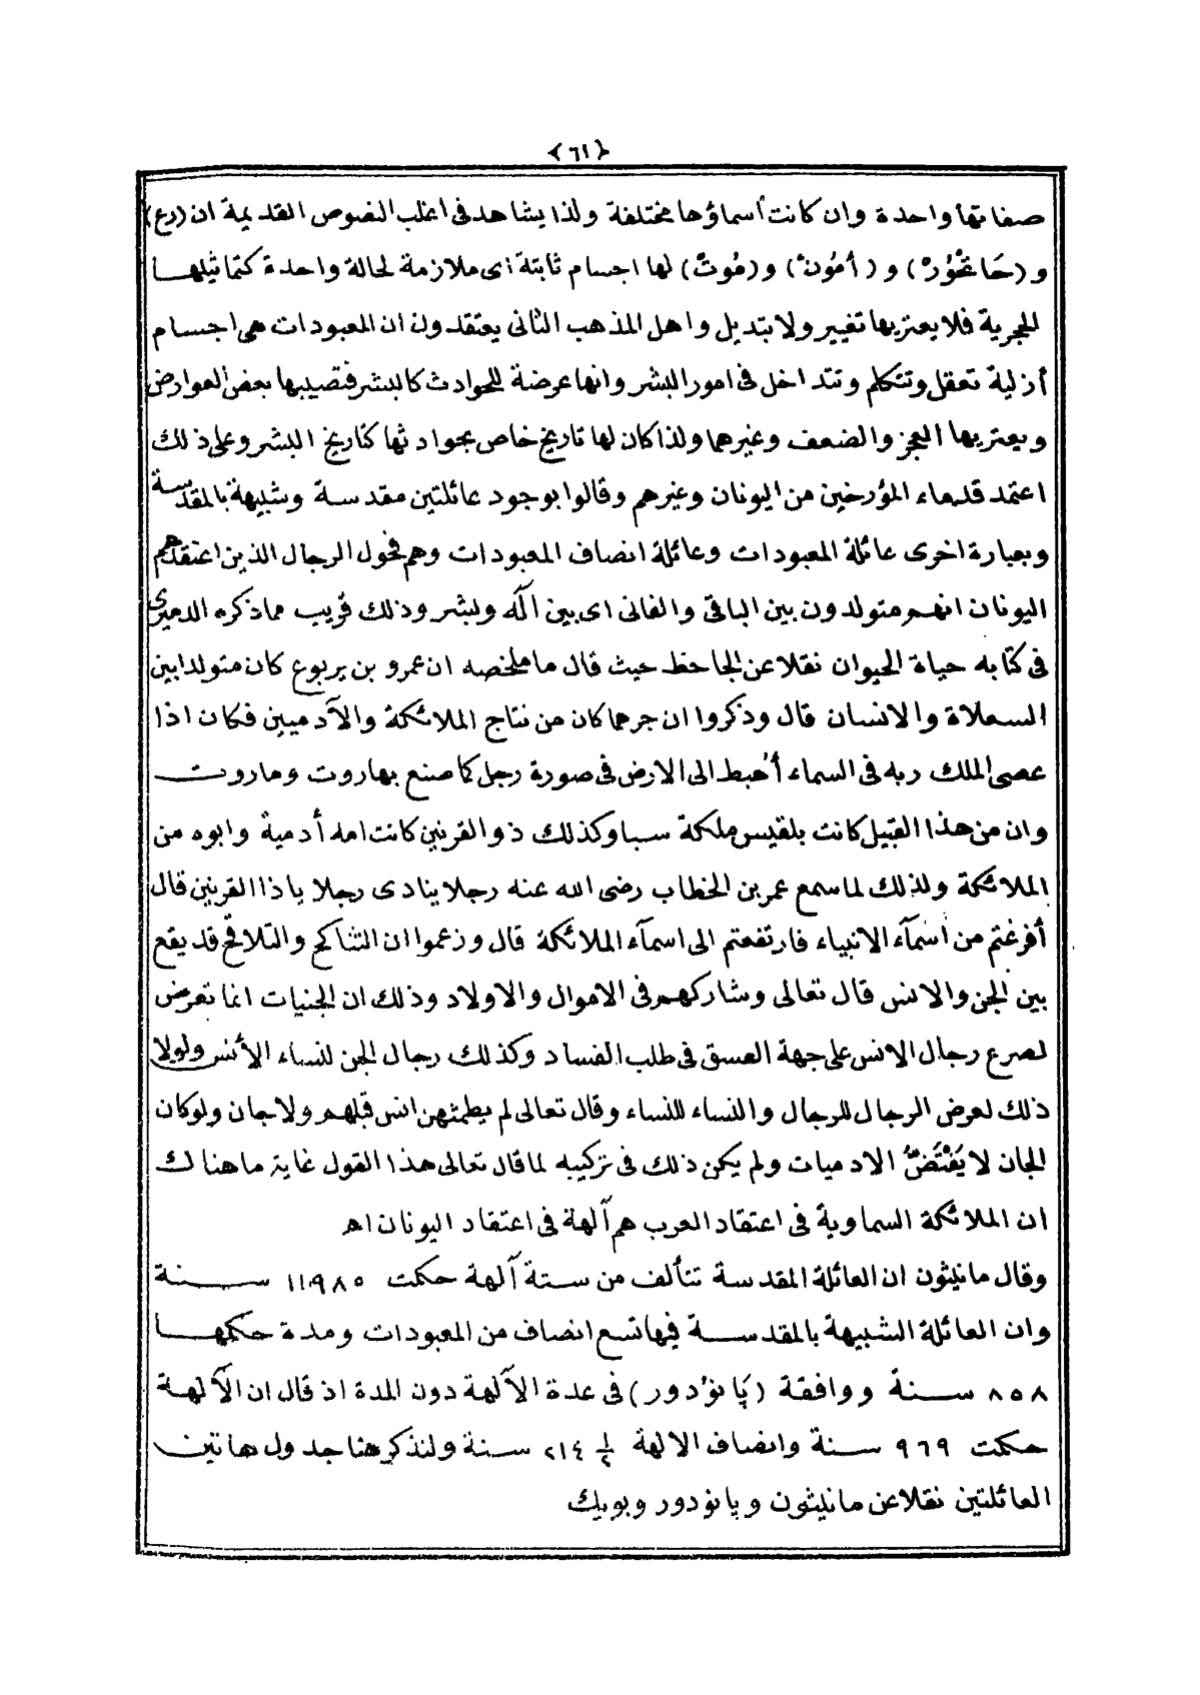 ﴿٦١﴾
صفاتها واحدة وان كانت أسماؤها مختلفة ولذا يشاهد فى اغلب النصوص القديمة ان (رع)
و (حَاتْحُورْ) و (أمُونْ) و (مُوتْ) لها اجسام ثابتة اى ملازمة لحالة واحدة كتماثيلهــا
الحجرية فلا يعتريها تغيير ولا تبديل واهل المذهب الثانى يعتقدون ان المعبودات هى اجسام
أزلية تعقل وتتكلم وتتداخل فى امور البشر وانها عرضة للحوادث كالبشر فتصيبها بعض العوارض
ويعتريها العجز والضعف وغيرهما ولذا كان لها تاريخ خاص بحوادثها كتاريخ البشر وعلى ذلك
اعتمد قدماء المؤرخين من اليونان وغيرهم وقالوا بوجود عائلتين مقدسة وشبيهة بالمقدسة
وبعبارة اخرى عائلة المعبودات وعائلة انصاف المعبودات وهم فحول الرجال الذين اعتقدهم
اليونان انهم متولدون بين الباقى والفانى اى بين آله وبشر وذلك قريب مما ذكره الدميرى
فى كتابه حياة الحيوان نقلا عن الجاحظ حيث قال ما ملخصه ان عمرو بن يربوع كان متولدا بين
السعلاة والانسان قال وذكروا ان جرهما كان من نتاج الملائكة والآدميين فكان اذا
عصى الملك ربه فى السماء أهبط الى الارض فى صورة رجل كما صنع بهاروت وماروت
وان من هذا القبيل كانت بلقيس ملكة سبا وكذلك ذو القرنين كانت امه أدمية وابوه من
الملائكة ولذلك لما سمع عمر بن الخطاب رضى الله عنه رجلا ينادى رجلا يا ذا القرنين قال
أفرغتم من أسمآء الانبياء فارتفعتم الى اسمآء الملائكة قال وزعموا ان التناكح والتلاقح قد يقع
بين الجن والانس قال تعالى وشاركهم فى الاموال والاولاد وذلك ان الجنيات انما تعرض
لصرع رجال الانس على جهة العسق فى طلب الفساد وكذلك رجال الجن لنساء الأنس ولولا
ذلك لعرض الرجال للرجال والنساء للنساء وقال تعالى لم يطمثهن انس قبلهم ولا جان ولو كان
الجان لا يَفْتَضُّ الادميات ولم يكن ذلك فى تركيبه لما قال تعالى هذا القول غاية ما هنالك
ان الملائكة السماوية فى اعتقاد العرب هم آلهة فى اعتقاد اليونان اهـ
وقال مانيثون ان العائلة المقدسة تتألف من ستة آلهة حكمت ١١٩٨٥ ســنة
وان العائلة الشبيهة بالمقدسة فيها تسع انصاف من المعبودات ومدة حكمهــا
٨٥٨ سنة ووافقة (پَانوُدور) فى عدة الآلهة دون المدة اذ قال ان الآلهة
حكمت ٩٦٩ سنة وانصاف الالهة ١/٢ ٢١٤ سنة ولنذكر هنا جدول هاتين
العائلتين نقلا عن مانيثون وپانودور وبويك